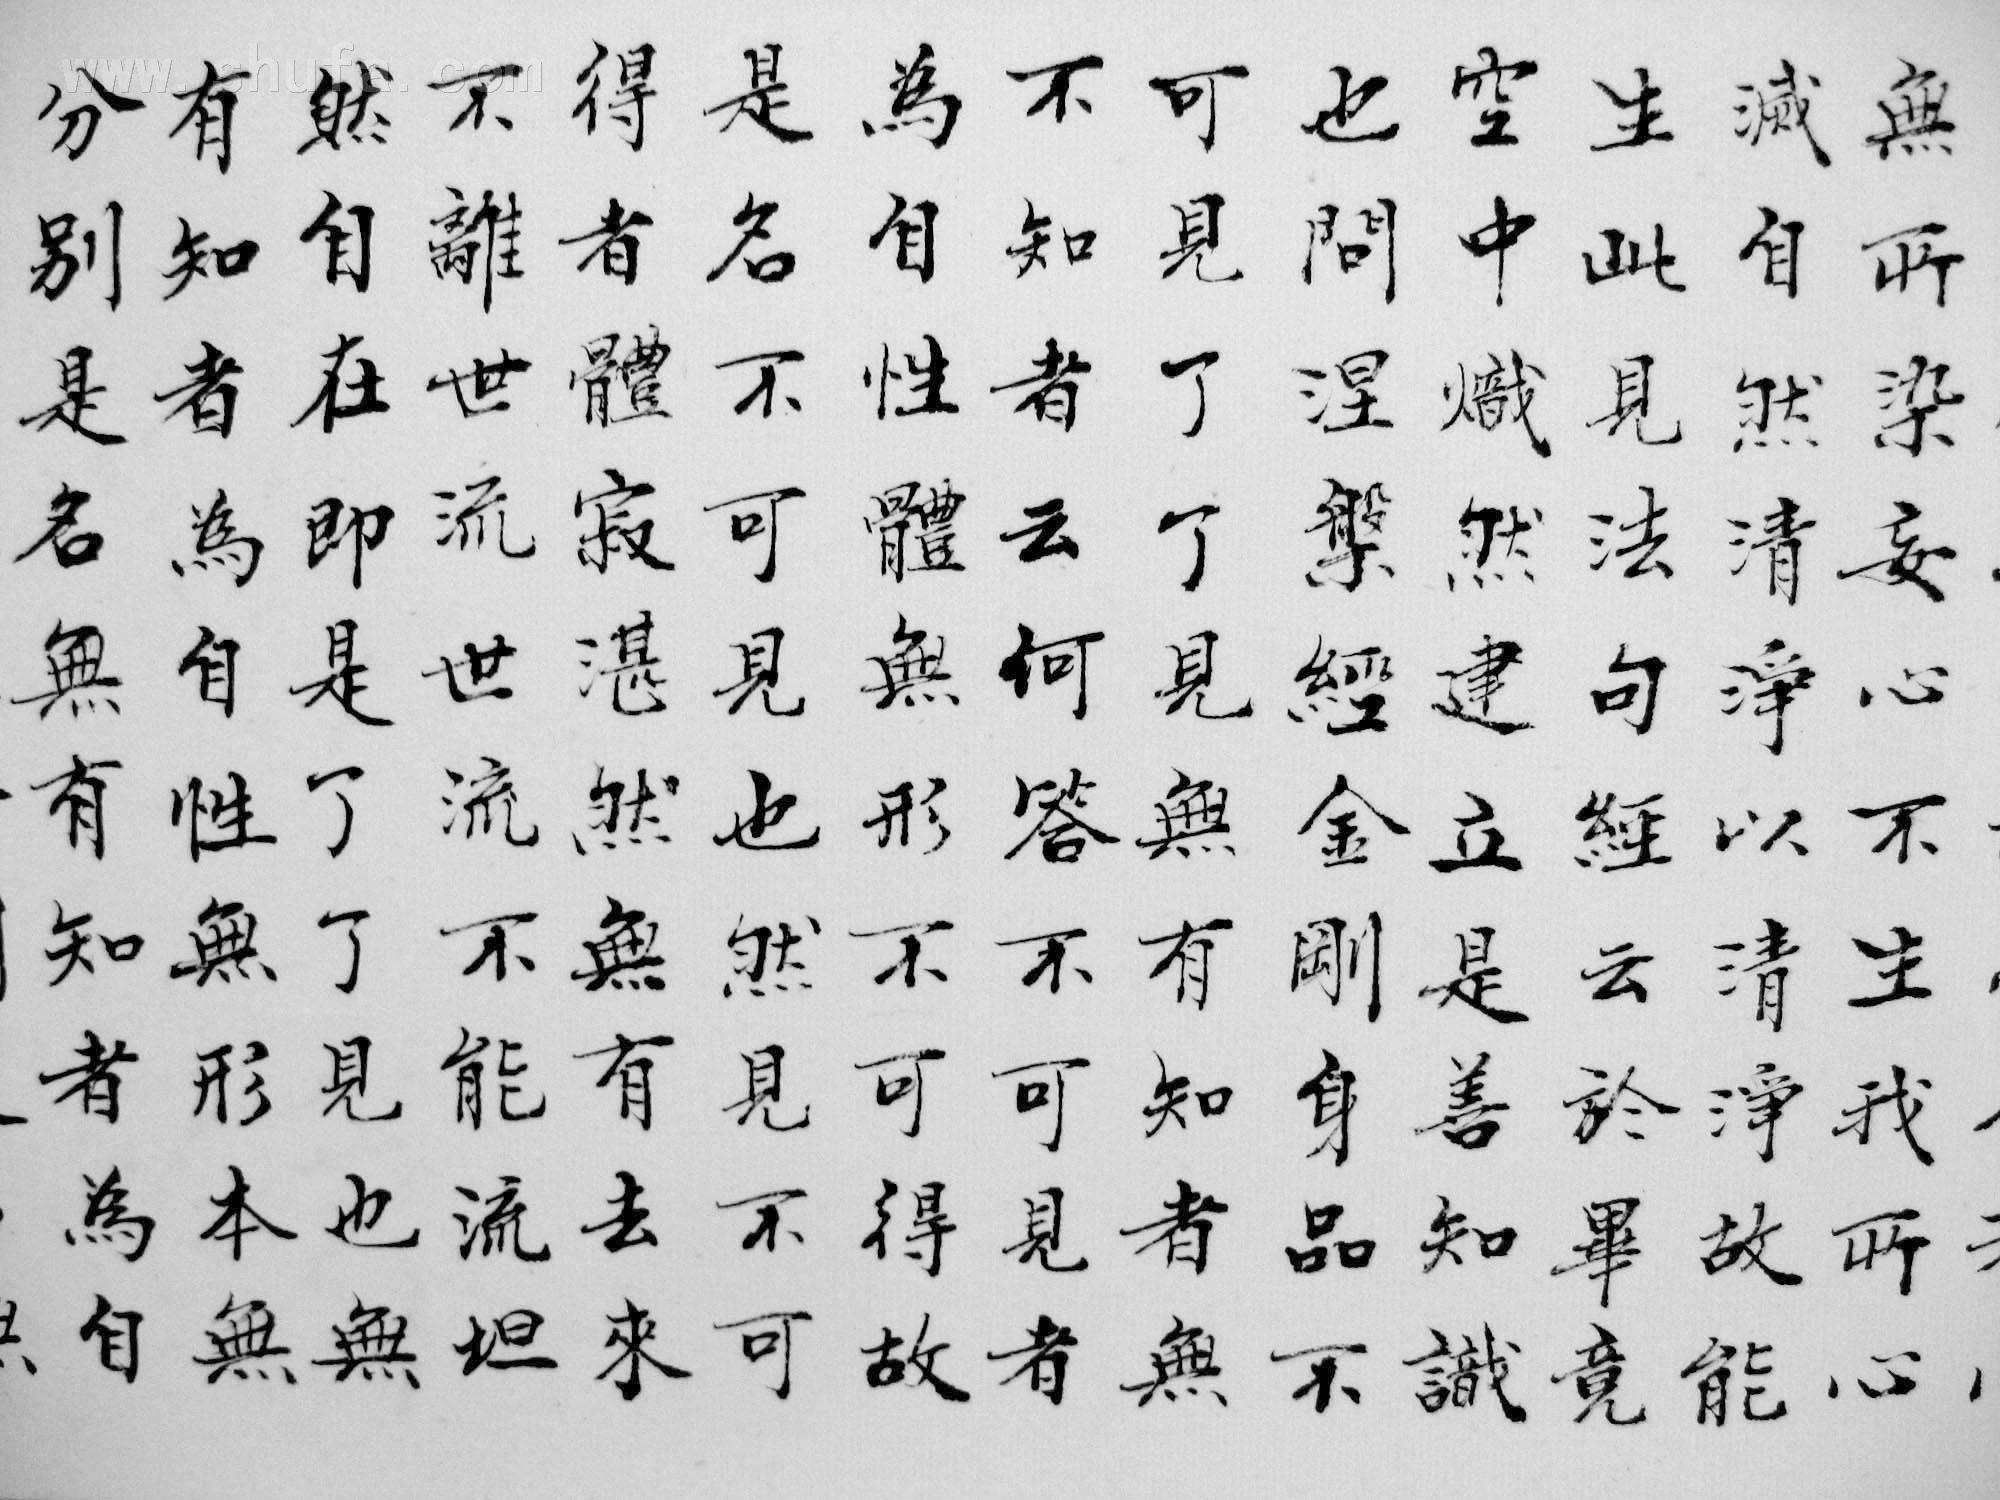 無所染妄心不生我所心
滅自然清淨以清淨故能
生此見法句經云於畢竟
空中熾然建立是善知識
也問涅槃經金剛身品不
可見了了見無有知者無
不知者云何答不可見者
為自性體無形不可得故
是名不可見也然見不可
得者體寂湛然無有去來
不離世流世世流不能流坦
然自在即是了了見也無
有知者為自性無形本無
分別是名無有知者為自
www.shufa.com